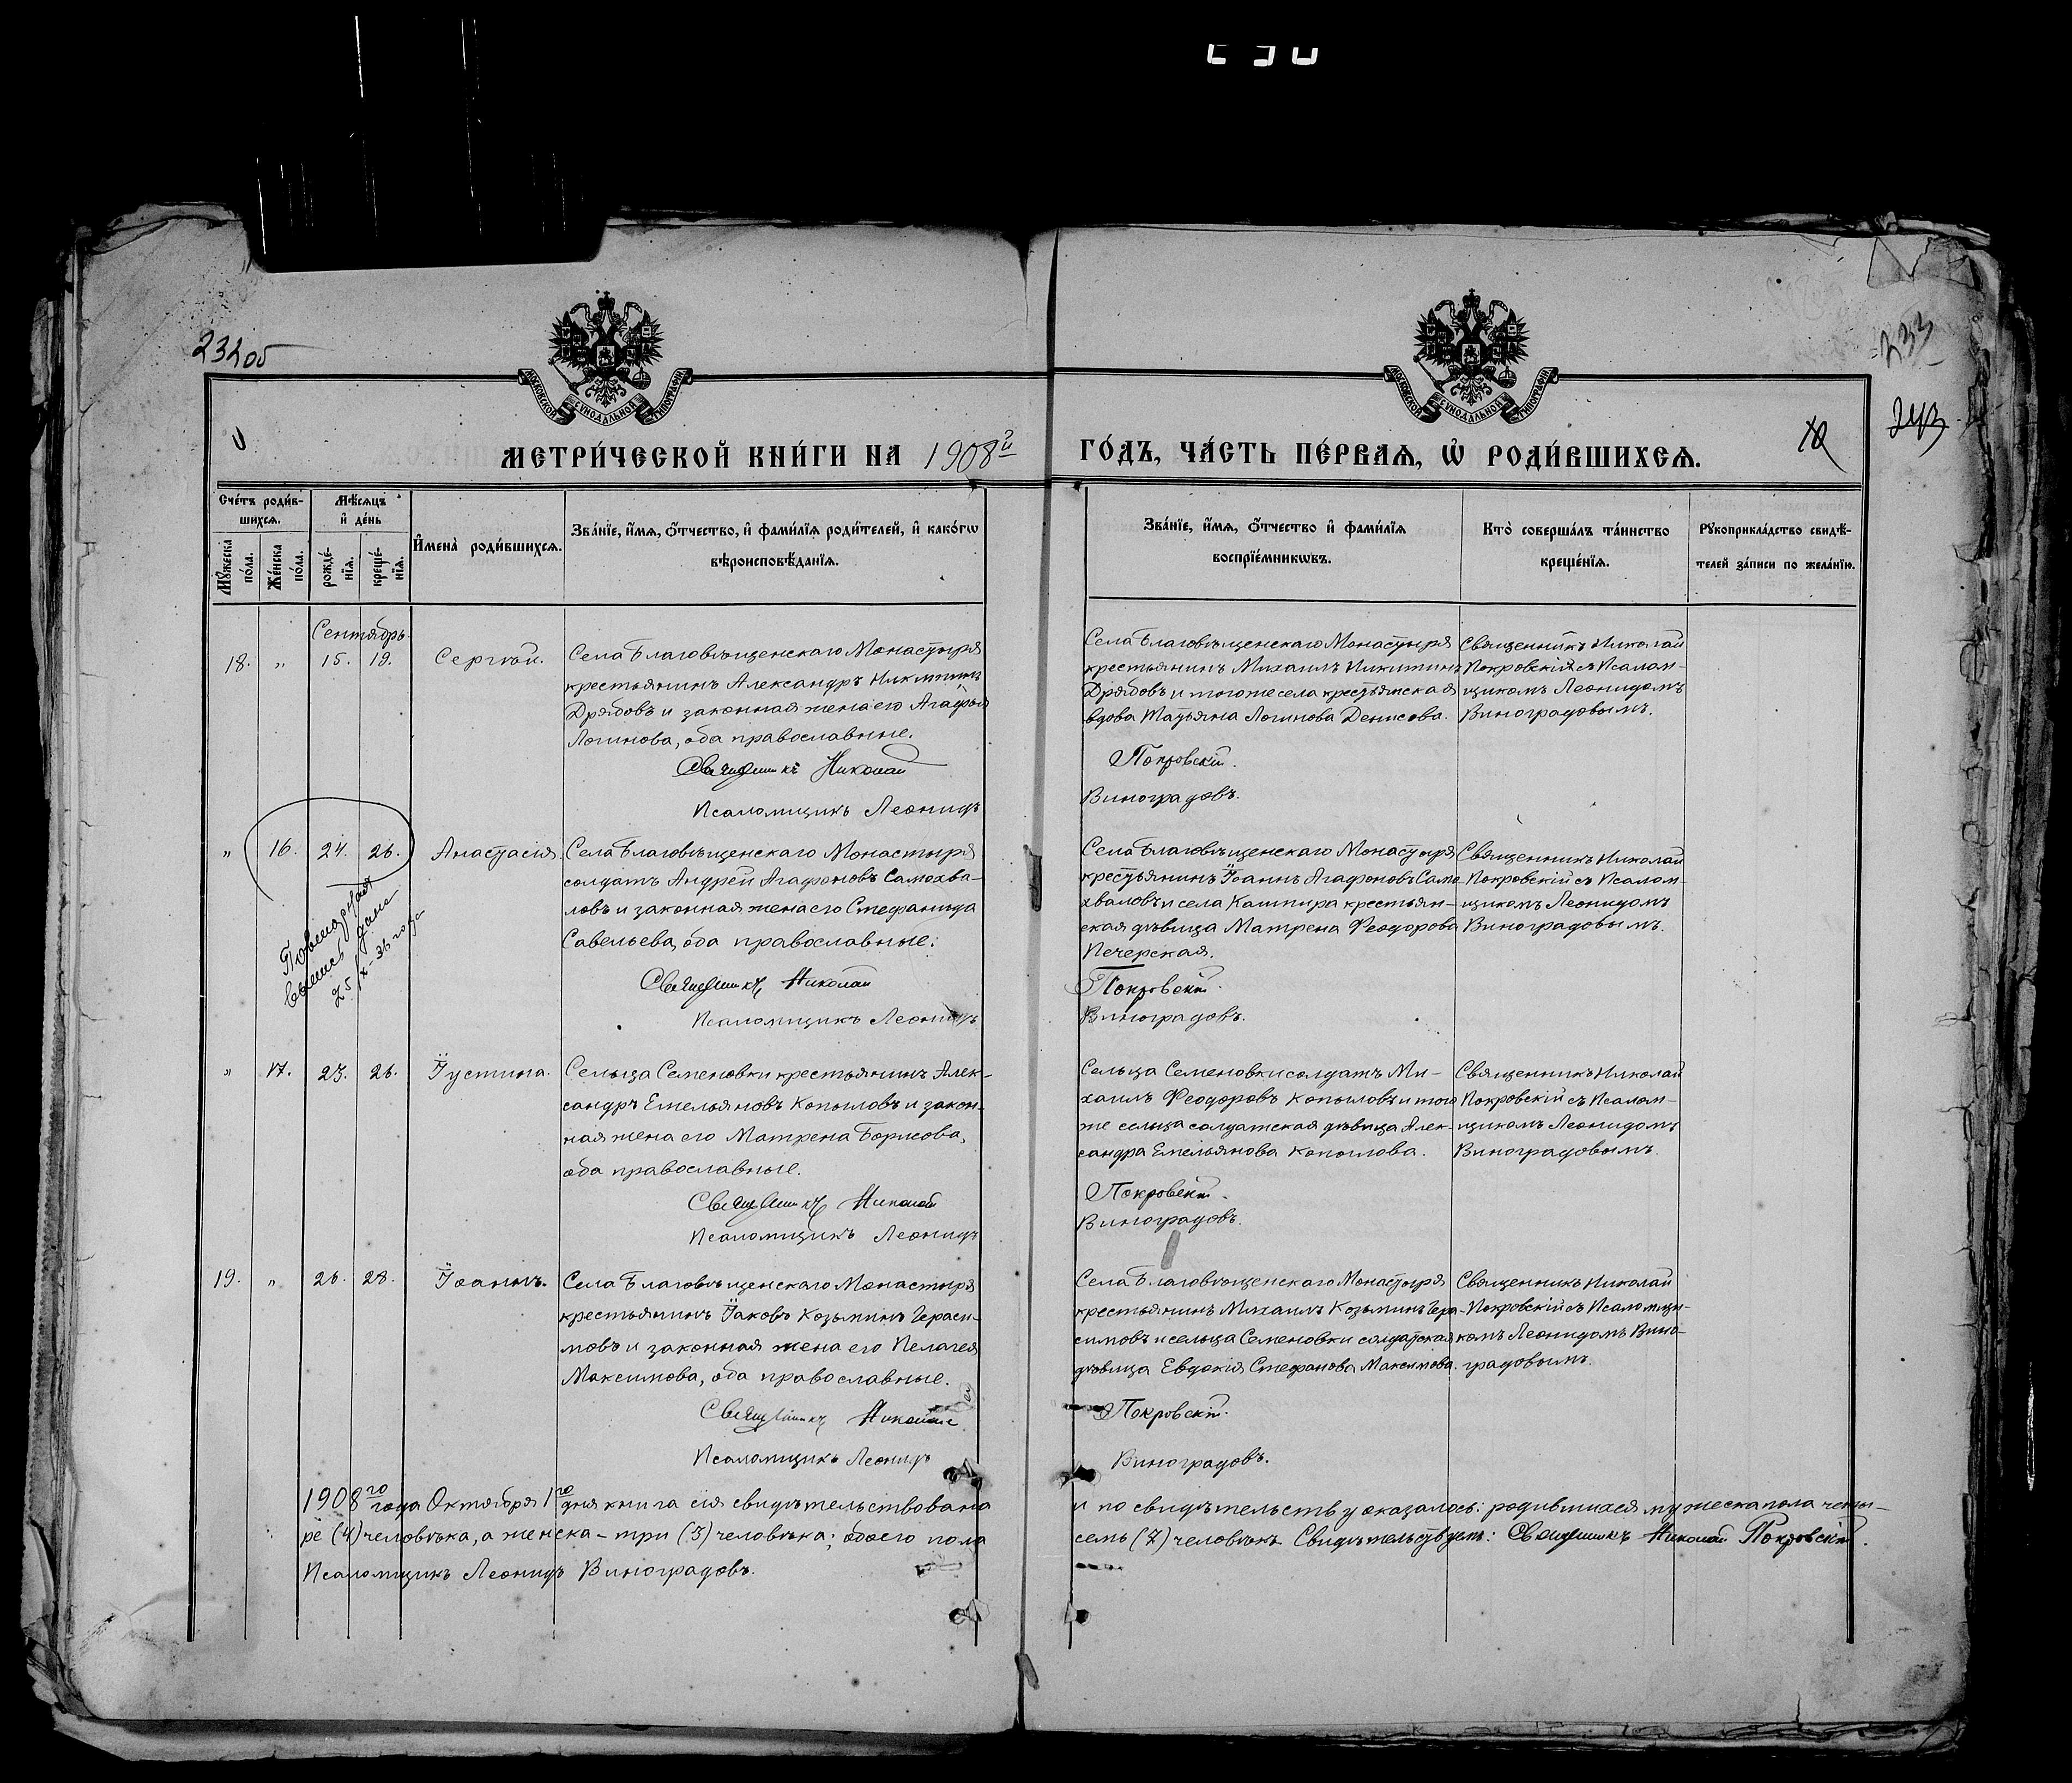 232об
233
243
МОСКОВСКОЙ СУНОДАЛЬНОЙ ТИПОГРАФІИ
МОСКОВСКОЙ СУНОДАЛЬНОЙ ТИПОГРАФІИ
МЕТРИ́ЧЕСКОЙ КНИ́ГИ НА 1908й ГО́ДЪ, ЧА́СТЬ ПЕ́РВАѦ, Ѡ҆ РОДИ́ВШИХСѦ.
Сче́тъ роди́в-
шихсѧ.
Мꙋ́жеска по́ла.
Же́нска по́ла.
Мѣ́сѧцъ
и҆ де́нь
рожде́-
нїѧ.
креще́-
нїѧ.
И҆мена̀ роди́вшихсѧ.
Зва́нїе, и҆́мѧ, ѻ҆́тчество, и҆ фами́лїѧ роди́телей, и҆ како́гѡ
вѣроисповѣ́данїѧ.
Зва́нїе, и҆́мѧ, ѻ҆́тчество и҆ фами́лїѧ
воспрїе́мникѡвъ.
Кто̀ соверша́лъ та́инство
креще́нїѧ.
Рꙋкоприкла́дство свидѣ́-
телей за́писи по жела́нїю.
Сентябрь.
18. " 15. 19. Сергѣй.
Села Благовѣщенскаго Монастыря
крестьянинъ Александръ Никитинъ
Дрябовъ и законная жена его Агафья
Логинова, оба православные.
Священникъ Николай
Псаломщикъ Леонидъ
Села Благовѣщенскаго Монастыря
крестьянинъ Михаилъ Никитинъ
Дрябовъ и тогоже села крестьянская
вдова Татьяна Логинова Денисова.
Покровскій.
Виноградовъ.
Священникъ Николай
Покровскій съ Псалом-
щикомъ Леонидомъ
Виноградовымъ.
" 16. 24. 26. Анастасія.
Повторная
выпись дана
25/IX-36 года
Села Благовѣщенскаго Монастыря
солдатъ Андрей Агафоновъ Самохва-
ловъ и законная жена его Стефанида
Савельева, оба православные.
Священникъ Николай
Псаломщикъ Леонидъ
Села Благовѣщенскаго Монастыря
крестьянинъ Іоаннъ Агафоновъ Само-
хваловъ и села Каштира крестьян-
ская дѣвица Матрена Феодорова
Печерская.
Покровскій.
Виноградовъ.
Священникъ Николай
Покровскій съ Псалом-
щикомъ Леонидомъ
Виноградовымъ.
" 17. 23. 26. Іустина.
Сельца Семеновки крестьянинъ Алек-
сандръ Емельяновъ Копыловъ и закон-
ная жена его Матрена Борисова,
оба православные.
Священникъ Николай
Псаломщикъ Леонидъ
Сельца Семеновки солдатъ Ми-
хаилъ Феодоровъ Копыловъ и того
же сельца солдатская дѣвица Алек-
сандра Емельянова Копылова.
Покровскій.
Виноградовъ.
Священникъ Николай
Покровскій съ Псалом-
щикомъ Леонидомъ
Виноградовымъ.
19. " 26. 28. Іоаннъ.
Села Благовѣщенскаго Монастыря
крестьянинъ Іаковъ Козьминъ Гераси-
мовъ и законная жена его Пелагея
Максимова, оба православные.
Священникъ Николай
Псаломщикъ Леонидъ
Села Благовѣщенскаго Монастыря
крестьянинъ Михаилъ Козьминъ Гера-
симовъ и сельца Семеновки солдатская
дѣвица Евдокія Стефанова Максимова.
Покровскій.
Виноградовъ.
Священникъ Николай
Покровскій съ Псаломщи-
комъ Леонидомъ Вино-
градовымъ.
1908го года Октября 1го дня книга сія свидѣтельствована и по свидѣтельству оказалось: родившихся мужеска пола четы-
ре (4) человѣка, а женска - три (3) человѣка; обоего пола семь (7) человѣкъ. Свидѣтельствуемъ: Священникъ Николай Покровскій.
Псаломщикъ Леонидъ Виноградовъ.